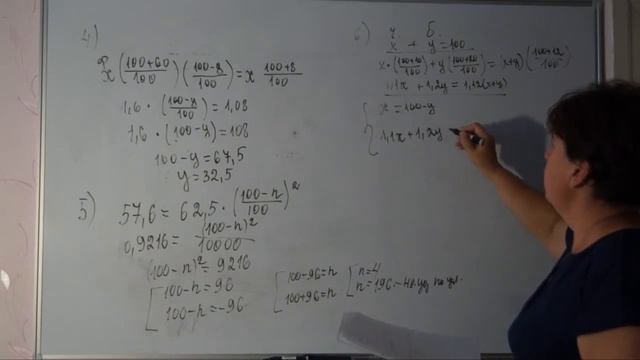 4)
x((100+60)/100)((100-y)/100)=x (100+8)/100
1,6 · ((100-y)/100) = 1,08
1,6 · (100-y)=108
100-y=67,5
y=32,5
5)
57,6 = 62,5 · ((100-n)/100)²
0,9216 = (100-n)²/10000
(100-n)² = 9216
[100-n=96
100-n=-96
[100-96=n
100+96=n
[n=4
n=196 - не уд. по усл.
6)
ч. б.
x + y = 100
x·((100+10)/100)+y((100+20)/100)=(x+y)((100+12)/100)
1,1x + 1,2y = 1,12(x+y)
{x = 100-y
1,1x+1,2y